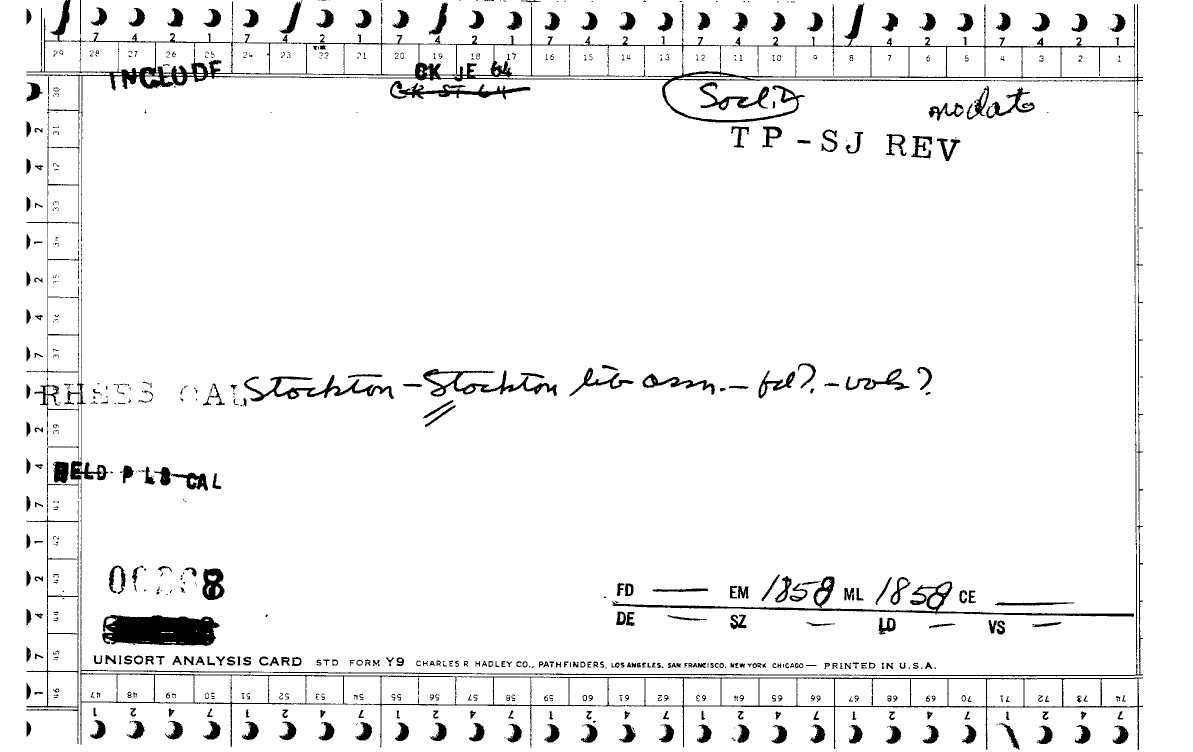 7 4 2 1 7 4 2 1 7 4 2 1 7 4 2 1 7 4 2 1 7 4 2 1 7 4 2 1
29 28 27 26 25 24 23 22 21 20 19 18 17 16 15 14 13 12 11 10 9 8 7 6 5 4 3 2 1
INCLUDE
CK JE 64
CK ST 64
SocLib
no date
TP-SJ REV
RHEES CAL Stockton - Stockton lib assn. - fd? - vols?
HELD P LB CAL
FD — EM 1858 ML 1858 CE —
DE — SZ — LD — VS —
UNISORT ANALYSIS CARD STD FORM Y9 CHARLES R HADLEY CO., PATHFINDERS, LOS ANGELES, SAN FRANCISCO, NEW YORK CHICAGO — PRINTED IN U.S.A.
47 48 49 50 51 52 53 54 55 56 57 58 59 60 61 62 63 64 65 66 67 68 69 70 71 72 73 74
1 2 4 7 1 2 4 7 1 2 4 7 1 2 4 7 1 2 4 7 1 2 4 7 1 2 4 7